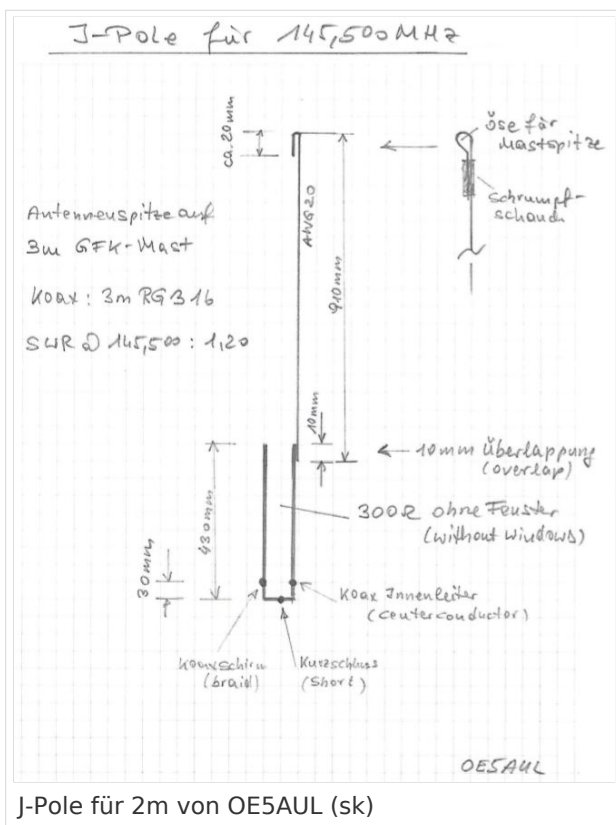 J-Pole für 145,500MHz
ca. 20mm
Öse für
Mastspitze
Schrumpf-
schlauch
Antennenspitze auf
3m GFK-Mast
Koax: 3m RG316
SWR @ 145,500: 1,20
AWG20
910mm
10mm
← 10mm Überlappung
(overlap)
430mm
300Ω ohne Fenster
(without windows)
30mm
Koax Innenleiter
(centerconductor)
Koaxschirm
(braid)
Kurzschluss
(Short)
OE5AUL
J-Pole für 2m von OE5AUL (sk)